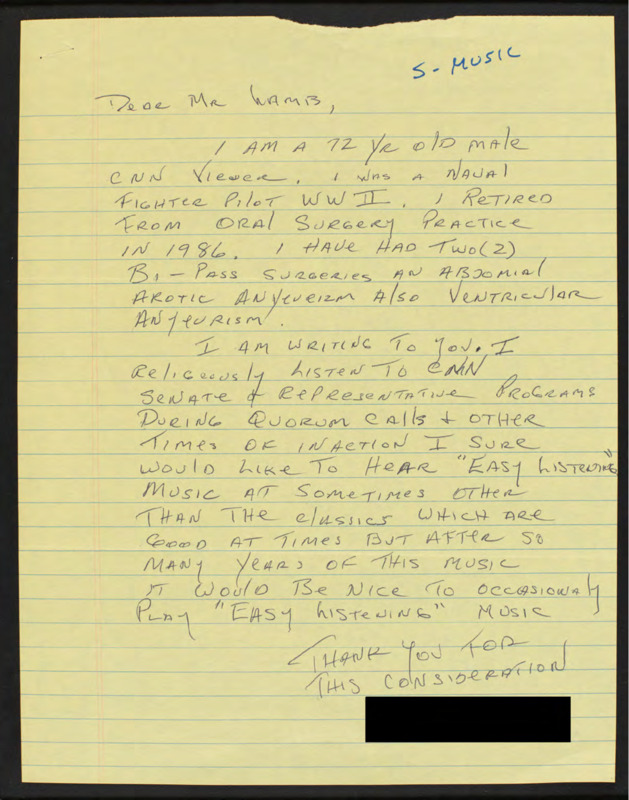 S- MUSIC
Dear Mr LAMB,
I AM A 72 YR OLD MALE
CNN VIEWER. I WAS A NAVAL
FIGHTER PILOT WW II. I RETIRED
FROM ORAL SURGERY PRACTICE
IN 1986. I HAVE HAD TWO (2)
BI-PASS SURGERIES AN ABDOMIAL
AROTIC ANYEUEIZM ALSO VENTRICULAR
ANYEURISM.
I AM WRITING TO YOU. I
RELIGEOUSLY LISTEN TO CNN
SENATE & REPRESENTATIVE PROGRAMS
DURING QUORUM CALLS & OTHER
TIMES OF INACTION I SURE
WOULD LIKE TO HEAR "EASY LISTENING"
MUSIC AT SOMETIMES OTHER
THAN THE CLASSICS WHICH ARE
GOOD AT TIMES BUT AFTER SO
MANY YEARS OF THIS MUSIC
IT WOULD BE NICE TO OCCASIONALY
PLAY "EASY LISTENING" MUSIC
THANK YOU FOR
THIS CONSIDERATION